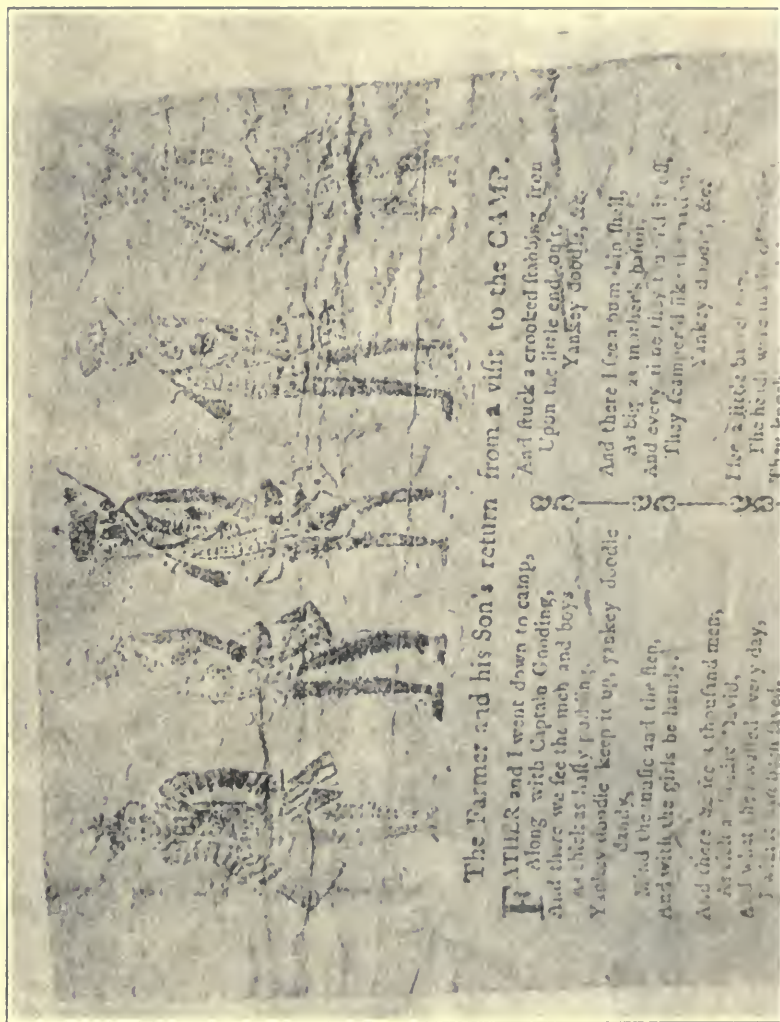 The Farmer and his Son's return from a viſit to the CAMP.
FATHER and I went down to camp,
Along with Captain Gooding,
And there we ſee the men and boys
As thick as haſty pudding.
Yankey doodle keep it up, yankey doodle
dandy,
Mind the muſic and the ſtep,
And with the girls be handy.
And there we ſee a thouſand men,
As rich as 'Squire David,
And what they waſted every day,
And ſtuck a crooked ſtabbing iron
Upon the little end on't,
Yankey doodle, &c.
And there I ſee a pumpkin ſhell,
As big as mother's baſon,
And every time they touch'd it off,
They ſcamper'd like the nation.
Yankey doodle, &c.
I ſee a little barrel too,
The heads were made of